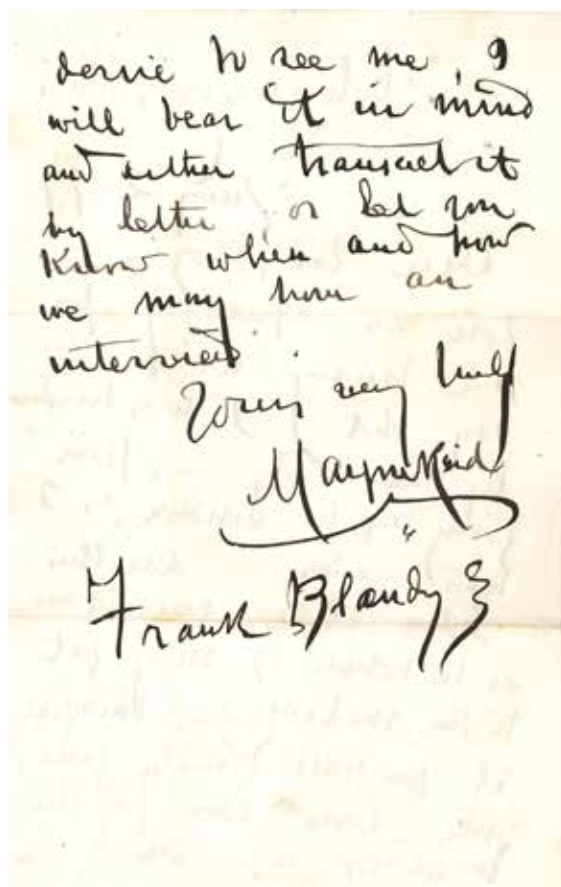 desire to see me, I
will bear it in mind
and either transact it
by letter or let you
know when and how
we may have an
interview
Yours very truly
Mayne Reid
Frank Blandy